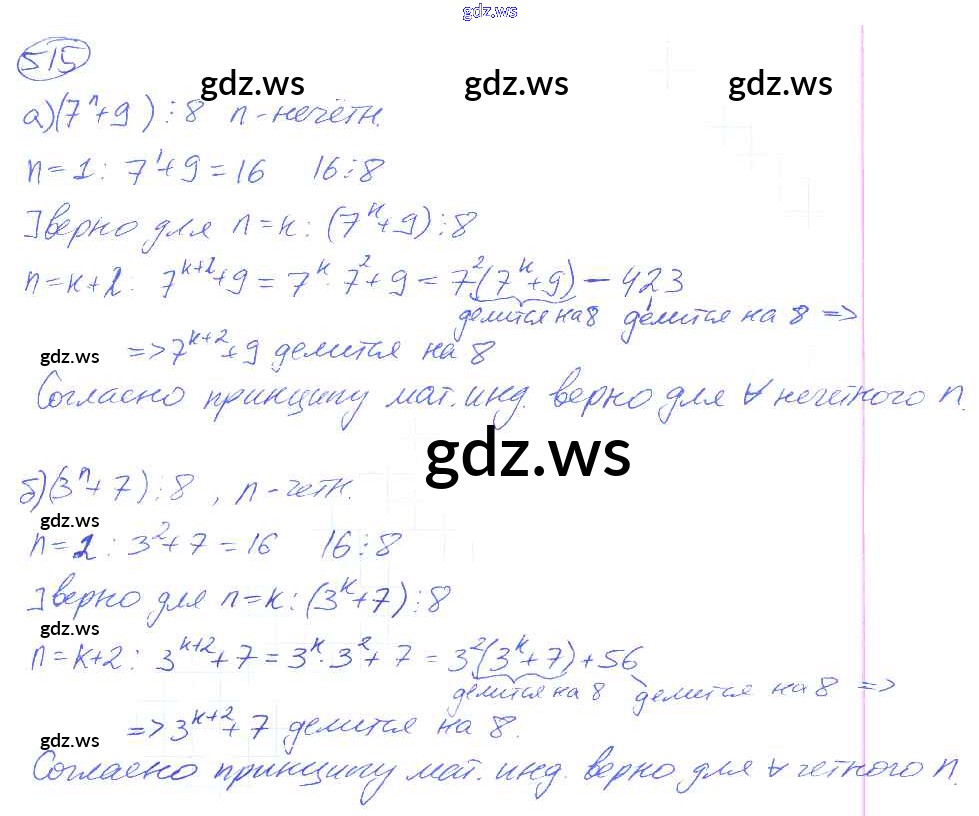 gdz.ws
515
gdz.ws gdz.ws gdz.ws
а) (7ⁿ+9) ⋮ 8 n - нечётн.
n=1: 7¹+9=16 16⋮8
] верно для n=к: (7ᵏ+9)⋮8
n=к+2: 7ᵏ⁺²+9 = 7ᵏ·7²+9 = 7²(7ᵏ+9) – 423
делится на 8 делится на 8 =>
gdz.ws => 7ᵏ⁺²+9 делится на 8
Согласно принципу мат. инд. верно для ∀ нечетного n.
gdz.ws
б) (3ⁿ+7)⋮8, n - четн.
gdz.ws
n=2: 3²+7=16 16⋮8
] верно для n=к: (3ᵏ+7)⋮8
gdz.ws
n=к+2: 3ᵏ⁺²+7 = 3ᵏ·3²+7 = 3²(3ᵏ+7)+56
делится на 8 делится на 8 =>
=> 3ᵏ⁺²+7 делится на 8.
gdz.ws
Согласно принципу мат. инд. верно для ∀ четного n.